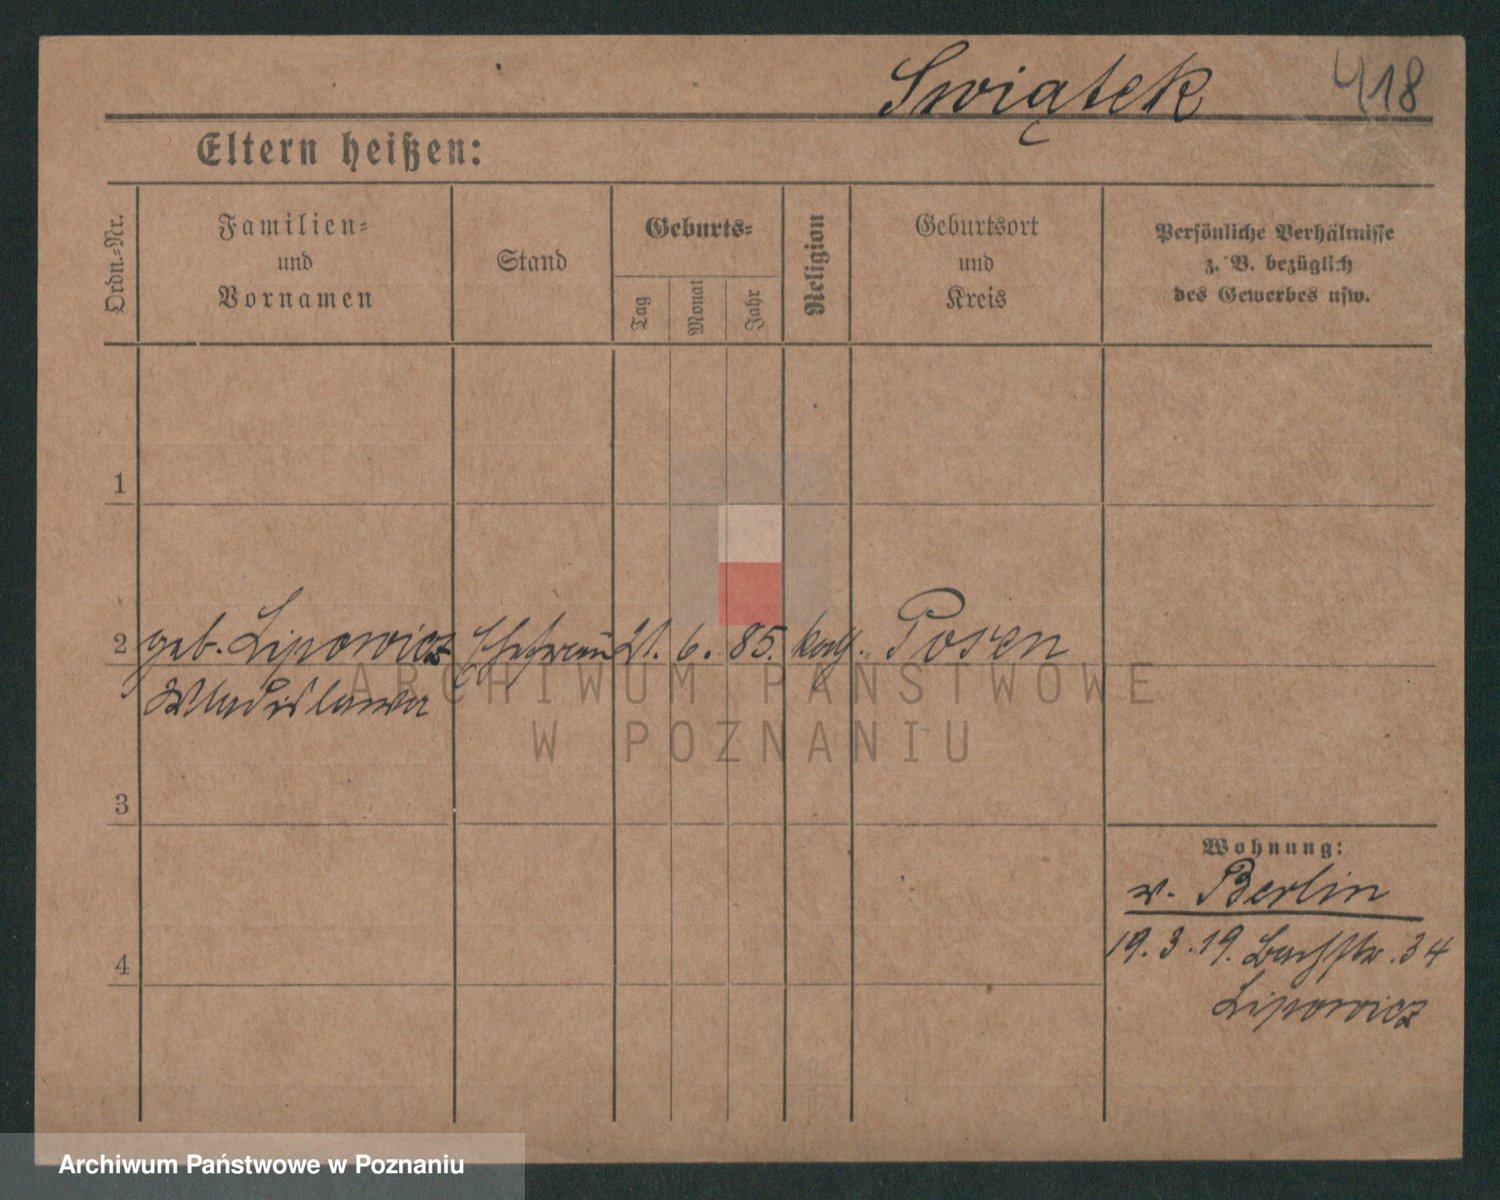 Swiątek 418
Eltern heißen:
Ordn.-Nr.
Familien- und Vornamen
Stand
Geburts-
Tag
Monat
Jahr
Religion
Geburtsort und Kreis
Persönliche Verhältnisse
z. B. bezüglich
des Gewerbes usw.
1
2 geb. Lipowicz Ehefrau 21. 6. 85. kath. Posen
Wladislawa
ARCHIWUM PAŃSTWOWE
W POZNANIU
3
Wohnung:
v. Berlin
19.3.19. Bachstr. 34
4
Lipowicz
Archiwum Państwowe w Poznaniu